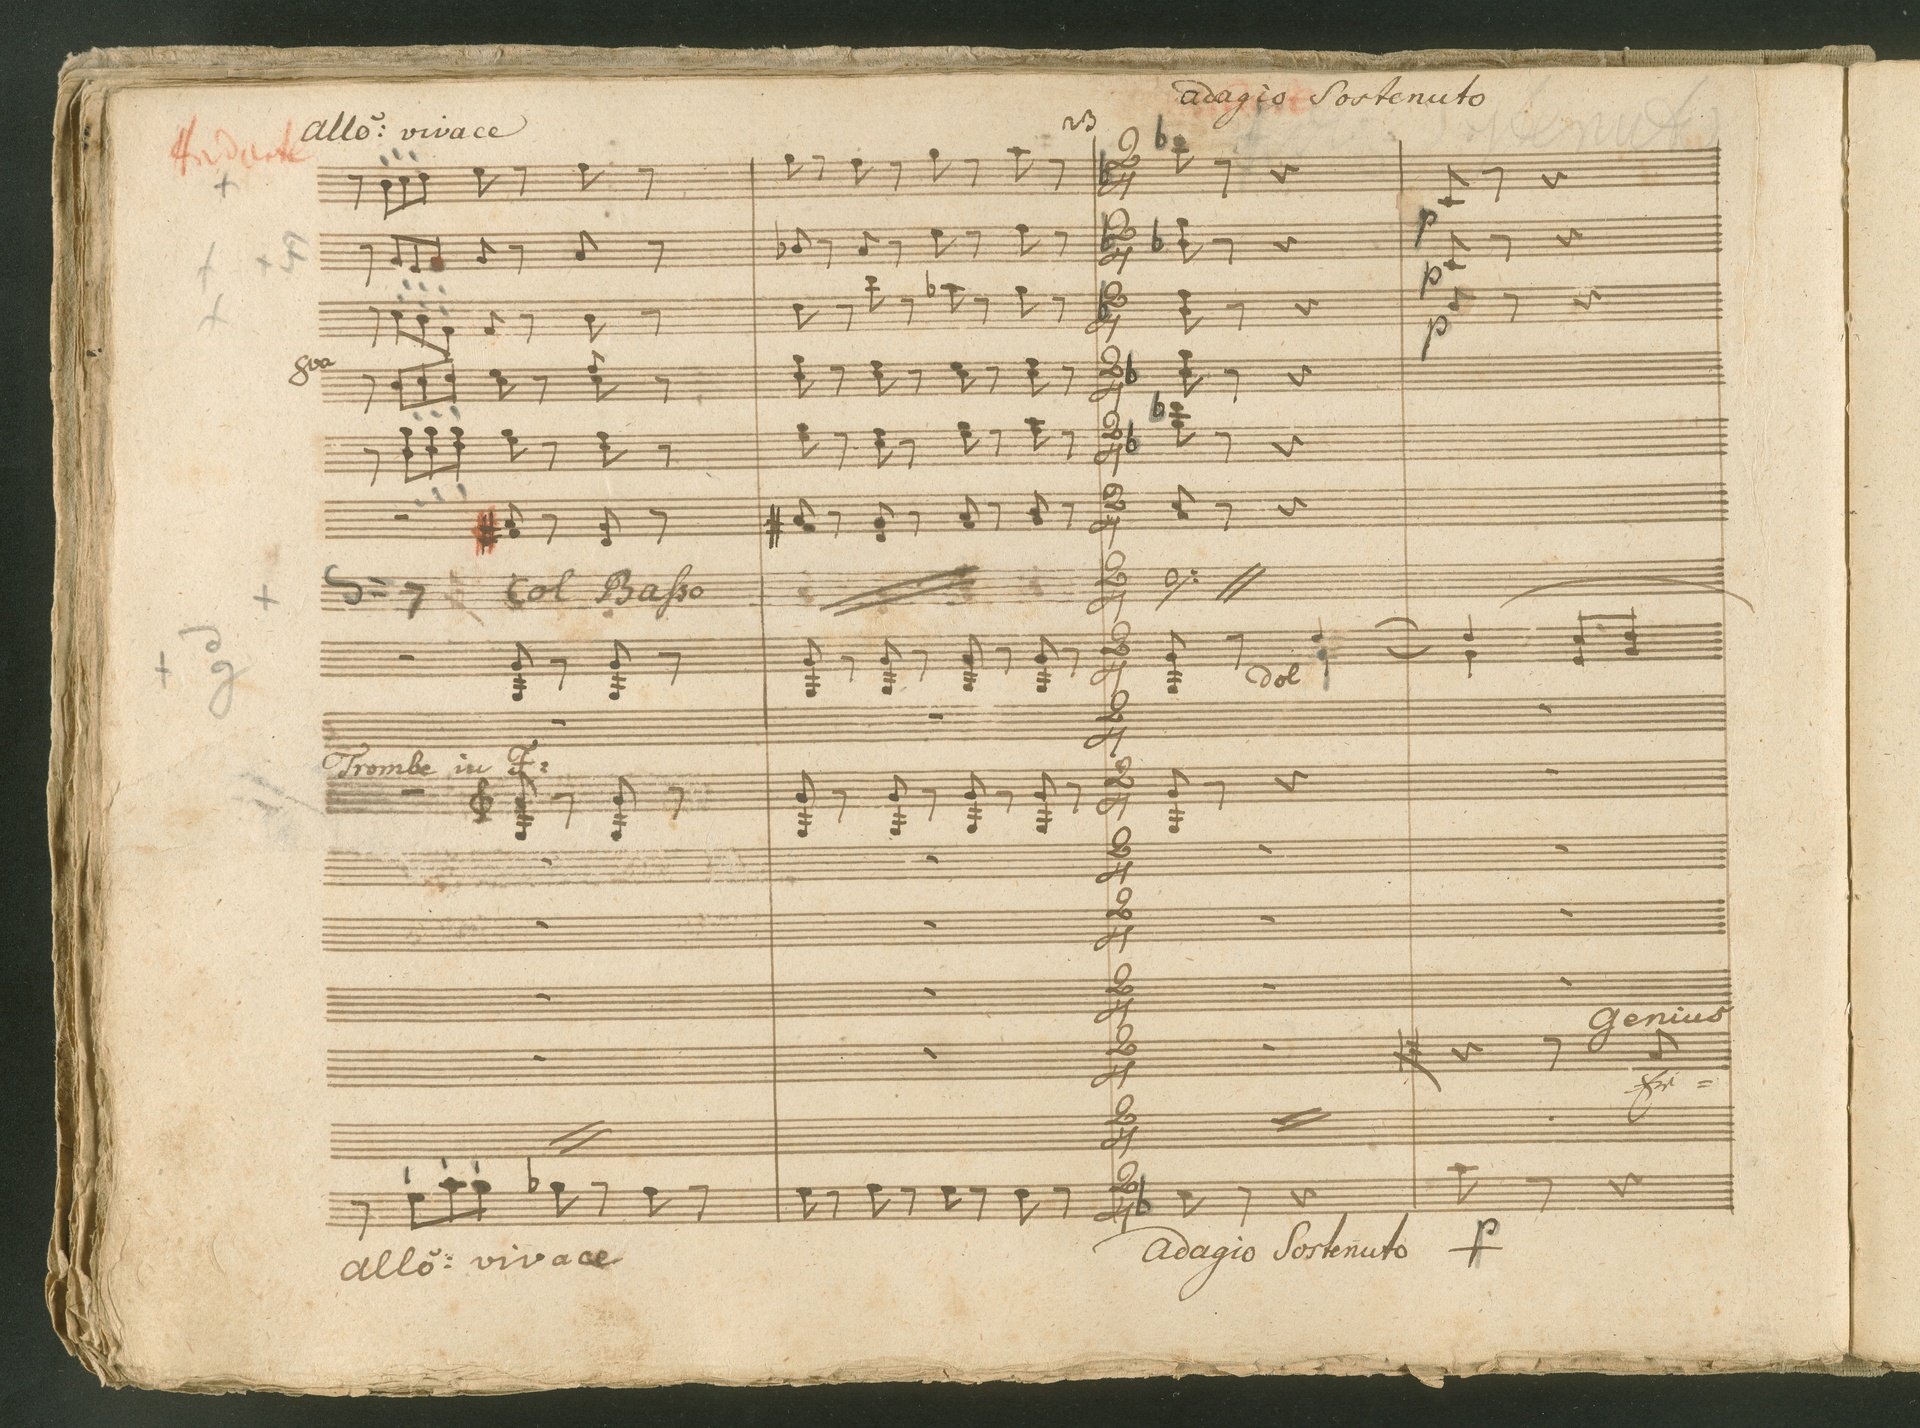 adagio Sostenuto
Andante allo: vivace
8va
Col Basso
dol
Trombe in F:
Genius
allo: vivace
Adagio Sostenuto p